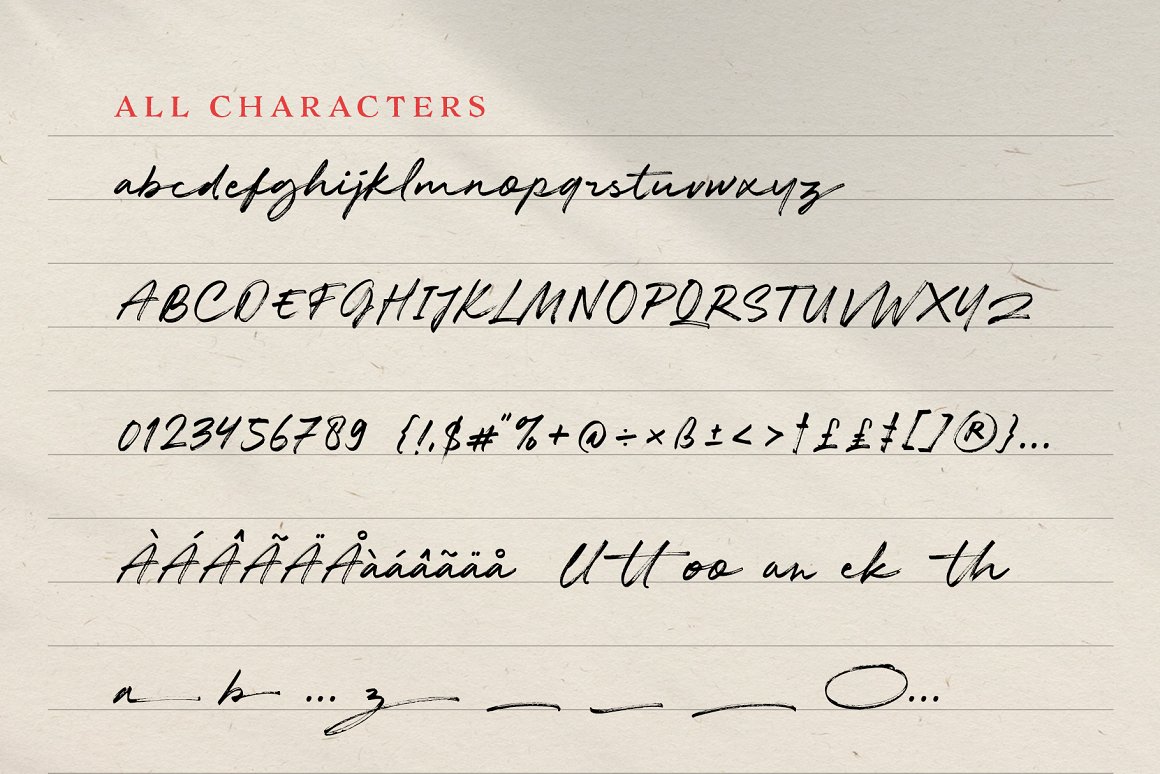 ALL CHARACTERS
abcdefghijklmnopqrstuvwxyz
ABCDEFGHIJKLMNOPQRSTUVWXYZ
0123456789 {!.$#"%+@÷×ß±<>†££‡[]®}...
ÀÁÂÃÄÅàáâãäå ll tt oo an ek th
a b ... z _ _ _ O...